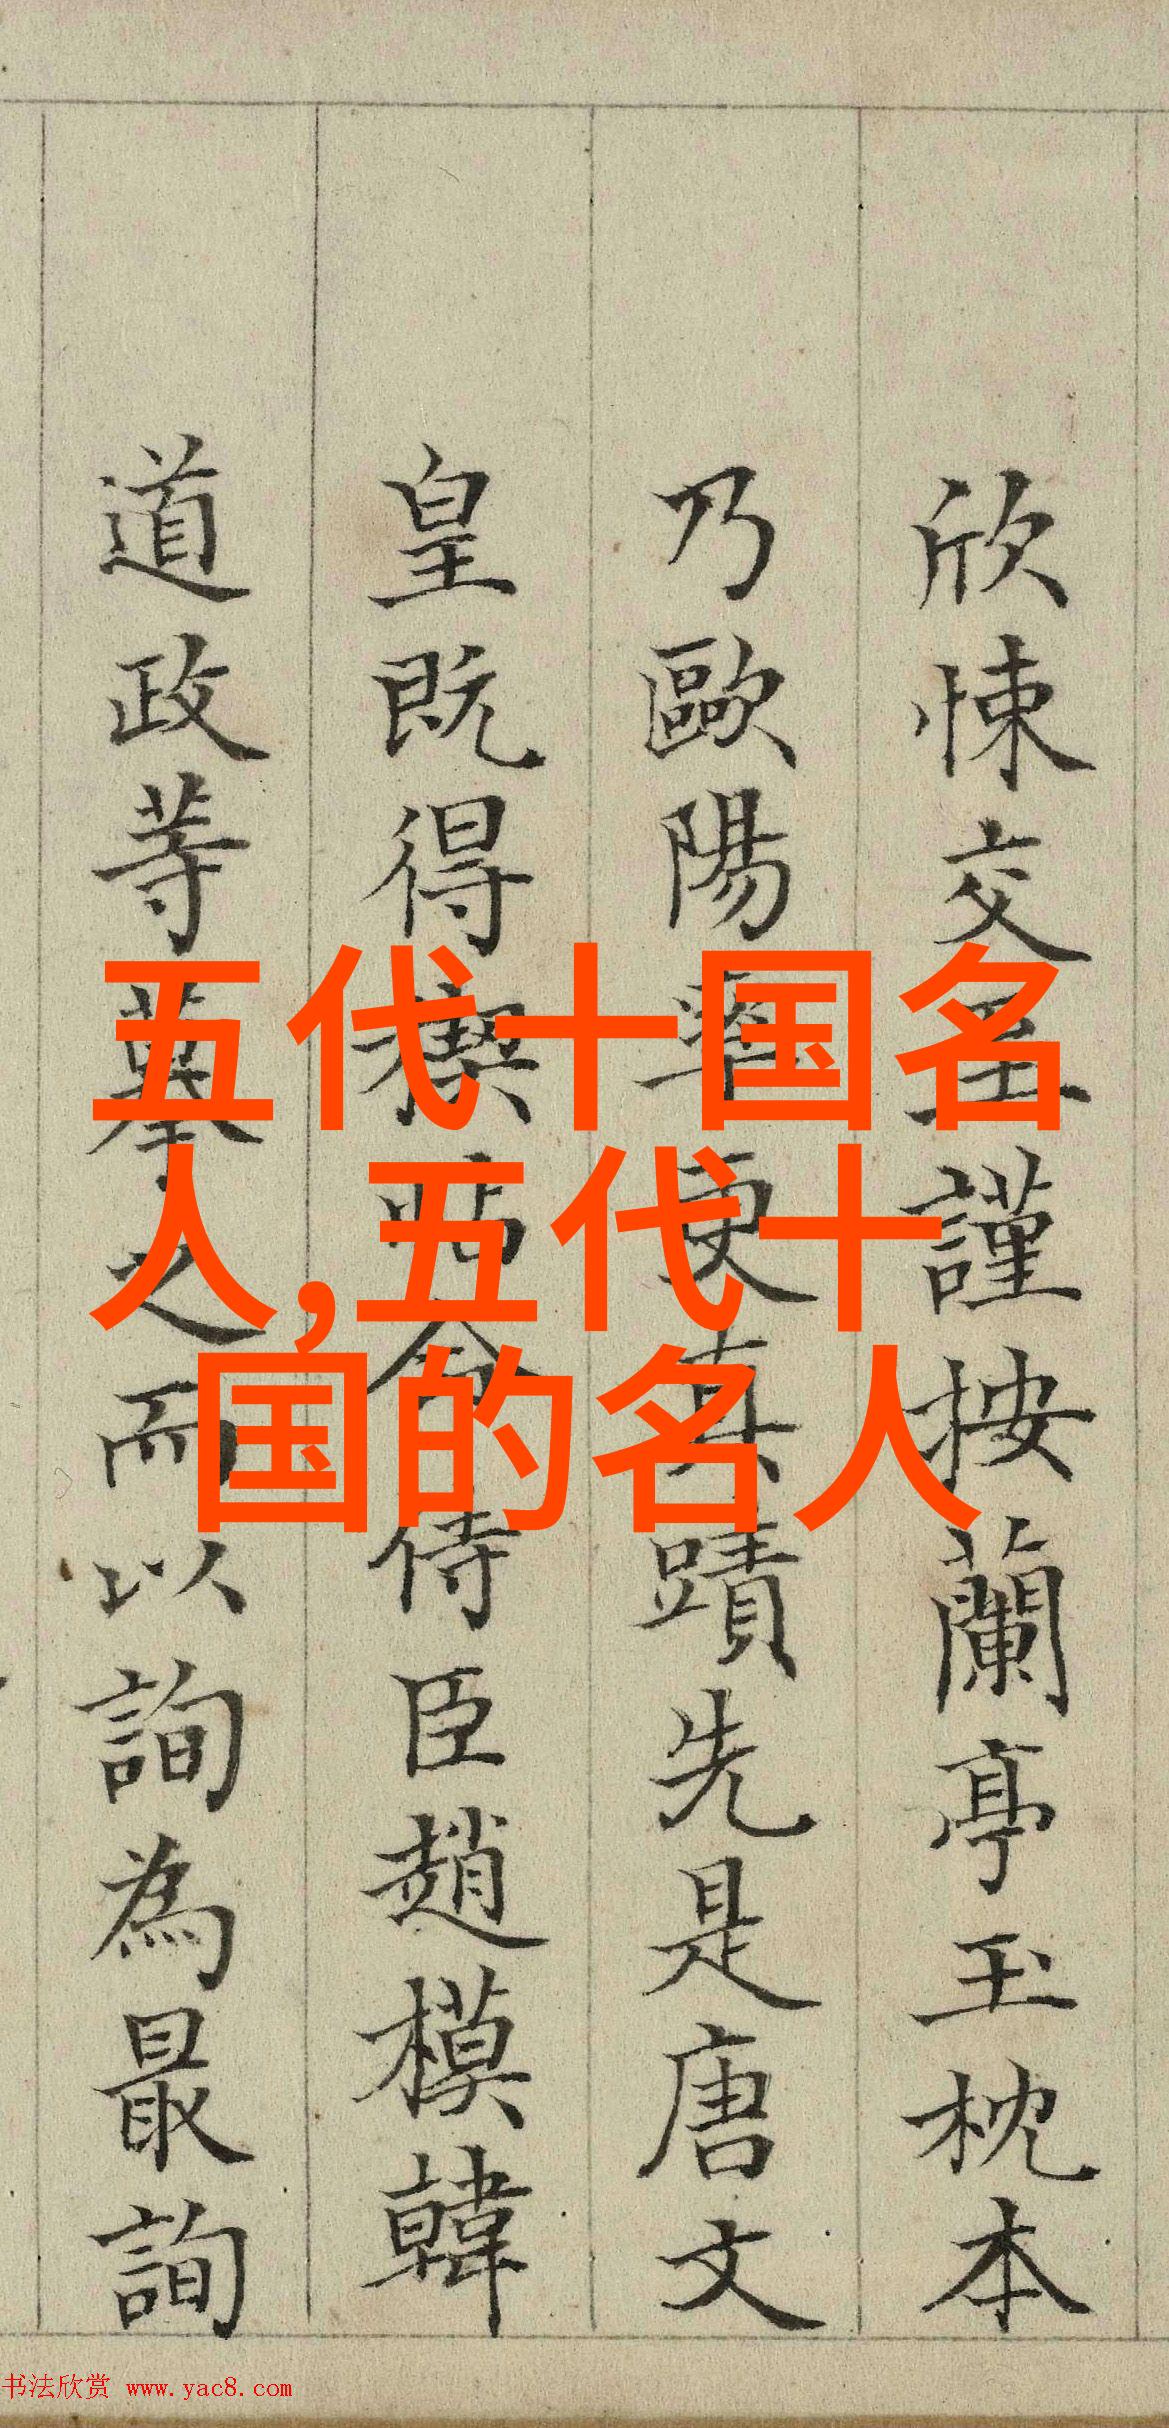 欣悚交至謹按蘭亭玉枕本
乃歐陽率更真蹟先是唐文
皇既得禊帖令侍臣趙模韓
道政等摹之而以詢為最詢
五代十国名
人,五代十
国的名人
书法欣赏 www.yac8.com